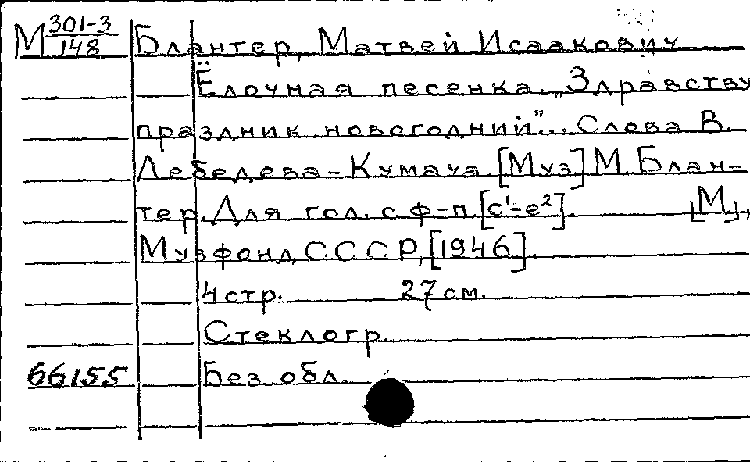 М 301-3/148 Блантер, Матвей Исаакович
Ёлочная песенка. „Здравству
праздник новогодний"... Слова В.
Лебедева-Кумача. [Муз] М. Блан-
тер. Для гол. с ф-п. [c¹-e²]. [М.],
Музфонд СССР, [1946].
4 стр. 27 см.
Стеклогр.
66155 Без обл.